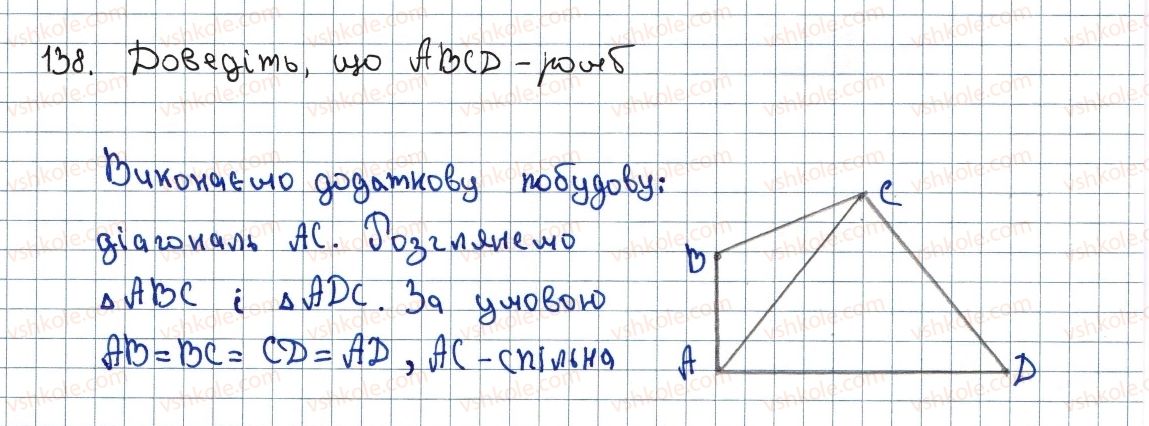 138. Доведіть, що ABCD - ромб
Виконаємо додаткову побудову:
діагональ AC. Розглянемо
△ABC і △ADC. За умовою
AB = BC = CD = AD, AC - спільна
C
B
A
D
vshkole.com